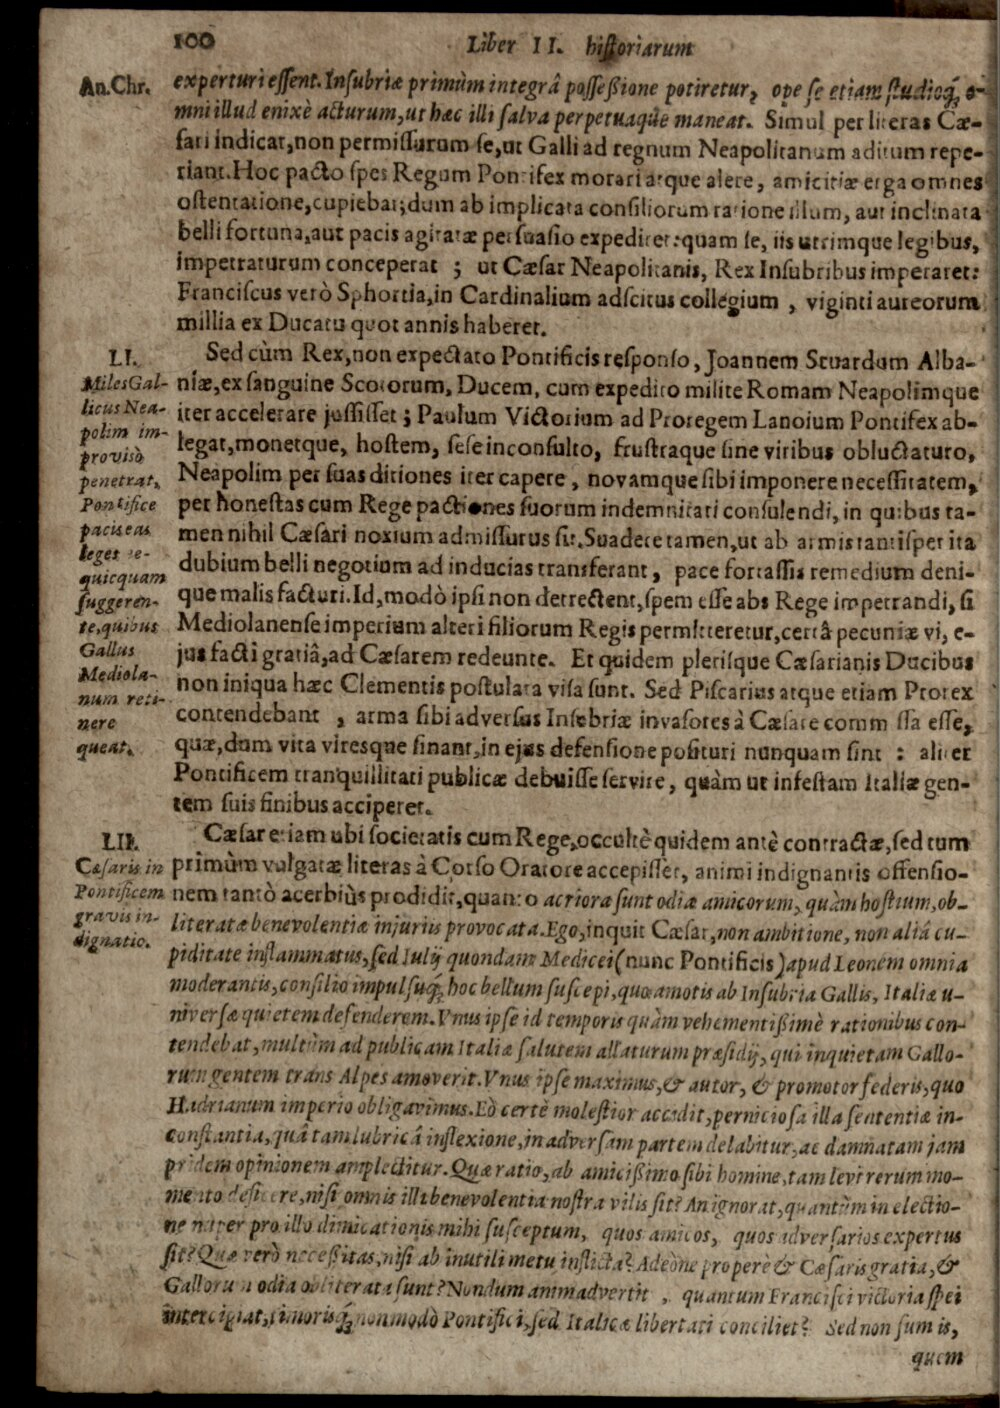 100
Liber II. historiarum
An.Chr.
experturi essent. Insubriæ primùm integrâ possessione potiretur, ope se etiam studioq́; o-
mni illud enixè acturum, ut hæc illi salva perpetuaque maneat. Simul per literas Cæ-
sari indicat, non permissurum se, ut Galli ad regnum Neapolitanum aditum repe-
riant. Hoc pacto spes Regum Pontifex morari atque alere, amicitiæ erga omnes
ostentatione, cupiebat; dum ab implicata consiliorum ratione illum, aut inclinata
belli fortuna, aut pacis agitatæ persuasio expediret: quam se, iis utrimque legibus,
impetraturum conceperat ; ut Cæsar Neapolitanis, Rex Insubribus imperaret:
Franciscus verò Sphortia, in Cardinalium adscitus collegium , viginti aureorum
millia ex Ducatu quot annis haberet.
LI.
Miles Gal-
licus Nea-
polim im-
proviso
penetrat,
Pontifice
pacis eas
leges ne-
quicquam
suggeren-
te, quibus
Gallus
Mediola-
num reti-
nere
queat.
Sed cùm Rex, non expectato Pontificis responso, Joannem Stuardum Alba-
niæ, ex sanguine Scotorum, Ducem, cum expedito milite Romam Neapolimque
iter accelerare jussisset ; Paulum Victorium ad Protegem Lanoium Pontifex ab-
legat, monetque, hostem, sese inconsulto, frustraque sine viribus obluctaturo,
Neapolim per suas ditiones iter capere , novamque sibi imponere necessitatem,
per honestas cum Rege pactiones suorum indemnitati consulendi, in quibus ta-
men nihil Cæsari noxium admissurus sit. Suadere tamen, ut ab armis tantisper ita
dubium belli negotium ad inducias transferant , pace fortassis remedium deni-
que malis facturi. Id, modò ipsi non detrectent, spem esse abs Rege impetrandi, si
Mediolanense imperium alteri filiorum Regis permitteretur, certâ pecuniæ vi, e-
jus facti gratiâ, ad Cæsarem redeunte. Et quidem plerisque Cæsarianis Ducibus
non iniqua hæc Clementis postulata visa sunt. Sed Piscarius atque etiam Protex
contendebant , arma sibi adversus Insubriæ invasores à Cæsare commissa esse,
quæ, dum vita viresque sinant, in ejus defensione posituri nunquam sint : aliter
Pontificem tranquillitati publicæ debuisse servire, quàm ut infestam Italiæ gen-
tem suis finibus acciperet.
LII.
Cæsaris in
Pontificem
gravis in-
dignatio.
Cæsar etiam ubi societatis cum Rege, occultè quidem antè contractæ, sed tum
primùm vulgatæ literas à Corso Oratore accepisset, animi indignantis offensio-
nem tantò acerbiùs prodidit, quanto acriora sunt odia amicorum, quàm hostium, ob-
literatæ benevolentiæ injuriis provocata. Ego, inquit Cæsar, non ambitione, non aliâ cu-
piditate inflammatus, sed Iulij quondam Medicei (nunc Pontificis) apud Leonem omnia
moderantis, consilio impulsuq́; hoc bellum suscepi, quo amotis ab Insubria Gallis, Italiæ u-
niversæ quietem defenderem. Vnus ipse id temporis quàm vehementißimè rationibus con-
tendebat, multùm ad publicam Italiæ salutem allaturum præsidij, qui inquietam Gallo-
rum gentem trans Alpes amoverit. Vnus ipse maximus, & autor, & promotor federis, quo
Hadrianum imperio obligavimus. Eò certè molestior accidit, perniciosa illa sententiæ in-
constantia, quâ tam lubricâ inflexione, in adversam partem delabitur, ac damnatam jam
pridem opinionem amplectitur. Quæ ratio, ab amicißimo sibi homine, tam levi rerum mo-
mento desicere, nisi omnis illi benevolentia nostra vilis sit? An ignorat, quantùm in electio-
ne nuper pro illo dimicationis mihi susceptum, quos amicos, quos adversarios expertus
sit? Quæ verò necessitas, nisi ab inutili metu inflicta? Adeòne properè & Cæsaris gratia, &
Gallorum odia obliterata sunt? Nondum animadvertit , quantum Francisci victoria spei
intercipiat, timorisq́; non modò Pontifici, sed Italicæ libertati conciliet? Sed non sum is,
quem